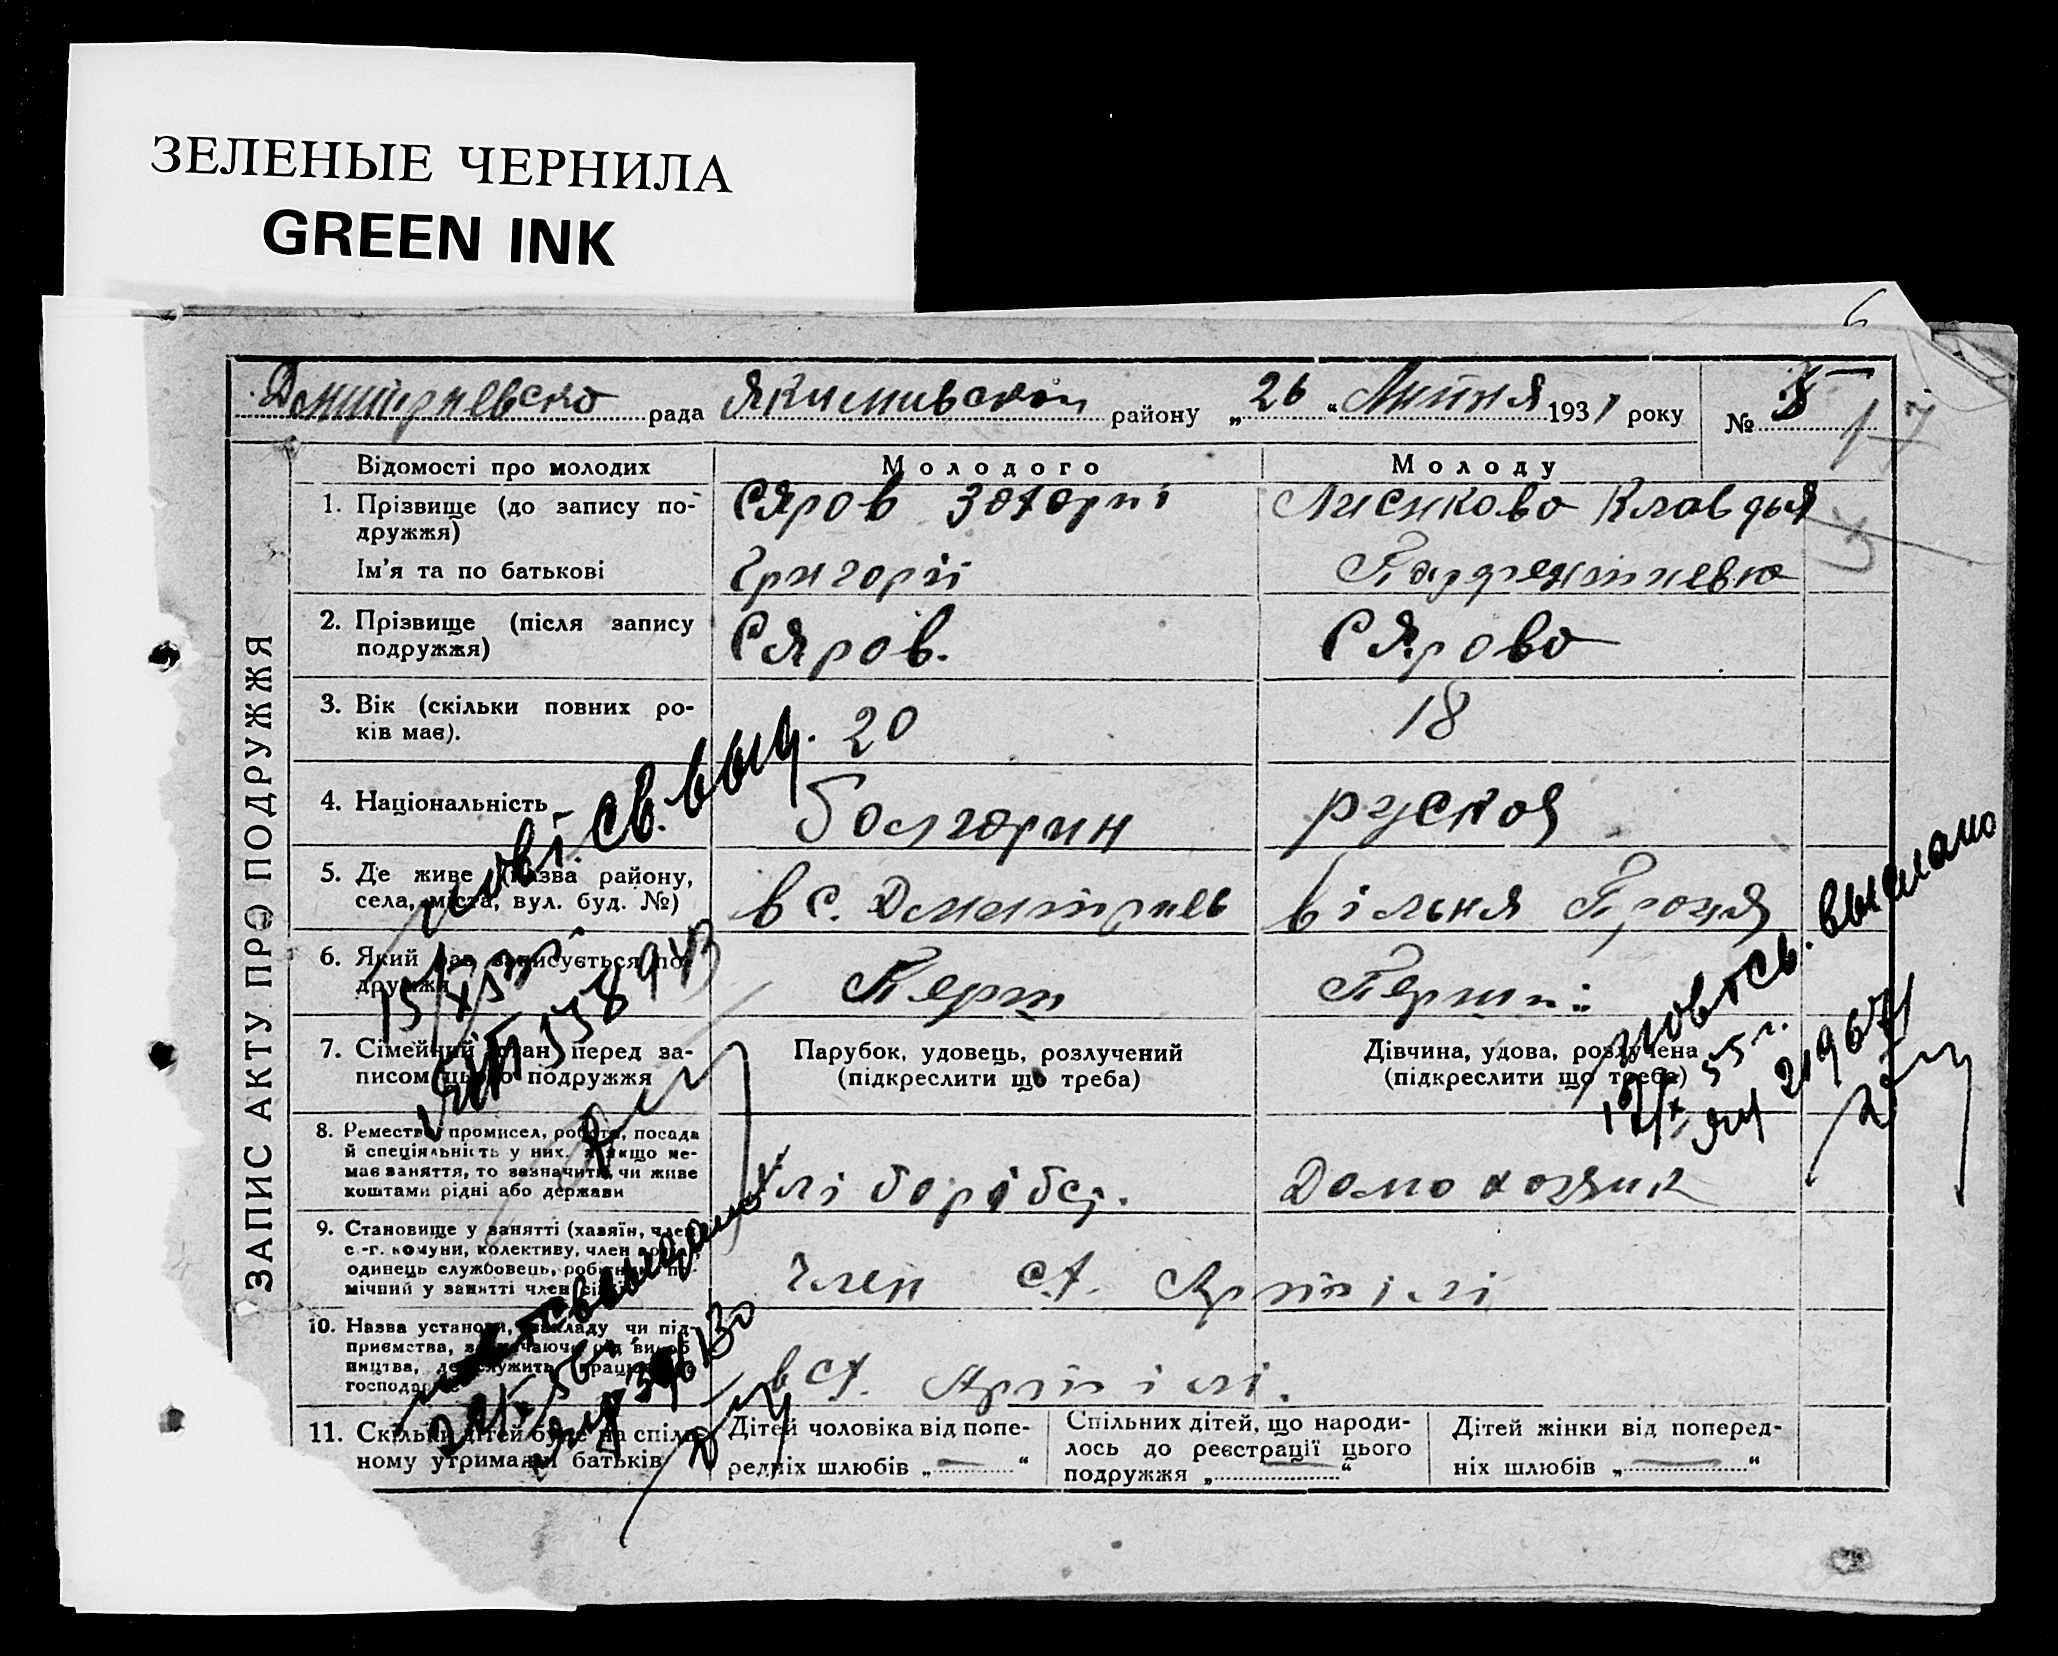 ЗЕЛЕНЫЕ ЧЕРНИЛА
GREEN INK
6
Дмитриевско рада Якимивской району „26“ Липня 1931 року № 5
17
ЗАПИС АКТУ ПРО ПОДРУЖЖЯ
Відомості про молодих Молодого Молоду
1. Прізвище (до запису по-
дружжя) Сяров Захарій Лисикова Клавдья
Ім'я та по батькові Григорій Парфентиевна
2. Прізвище (після запису
подружжя) Сяров. Сярова
3. Вік (скільки повних ро-
ків має). 20 18
4. Національність Болгарин руская
5. Де живе (назва району,
села, міста, вул. буд. №) в с. Дмитриев вільня Проця
6. Який раз записується по-
дружжя Перш Перший
7. Сімейний стан перед за-
писом цього подружжя
Парубок, удовець, розлучений
(підкреслити що треба)
Дівчина, удова, розлучена
(підкреслити що треба)
8. Ремество, промисел, робота, посада
й спеціяльність у них. А якщо не-
має заняття, то зазначити, чи живе
коштами рідні або держави
Хліборобец. Домохозяик
9. Становище у занятті (хазяїн, член
с.-г. комуни, колективу, член артілі,
одинець службовець, робітник, по-
мічний у занятті член сім'ї)
Член с/х. Артілі
10. Назва установи, закладу чи під-
приємства,
господарстве
в с/х. Артілі.
11. Скільки дітей буде на спіль-
ному утриманні батьків
Дітей чоловіка від попе-
редніх шлюбів „—“
Спільних дітей, що народи-
лось до реєстрації цього
подружжя „—“
Дітей жінки від поперед-
ніх шлюбів „—“
повт. св. выд.
повт. св. выслано
55 г.